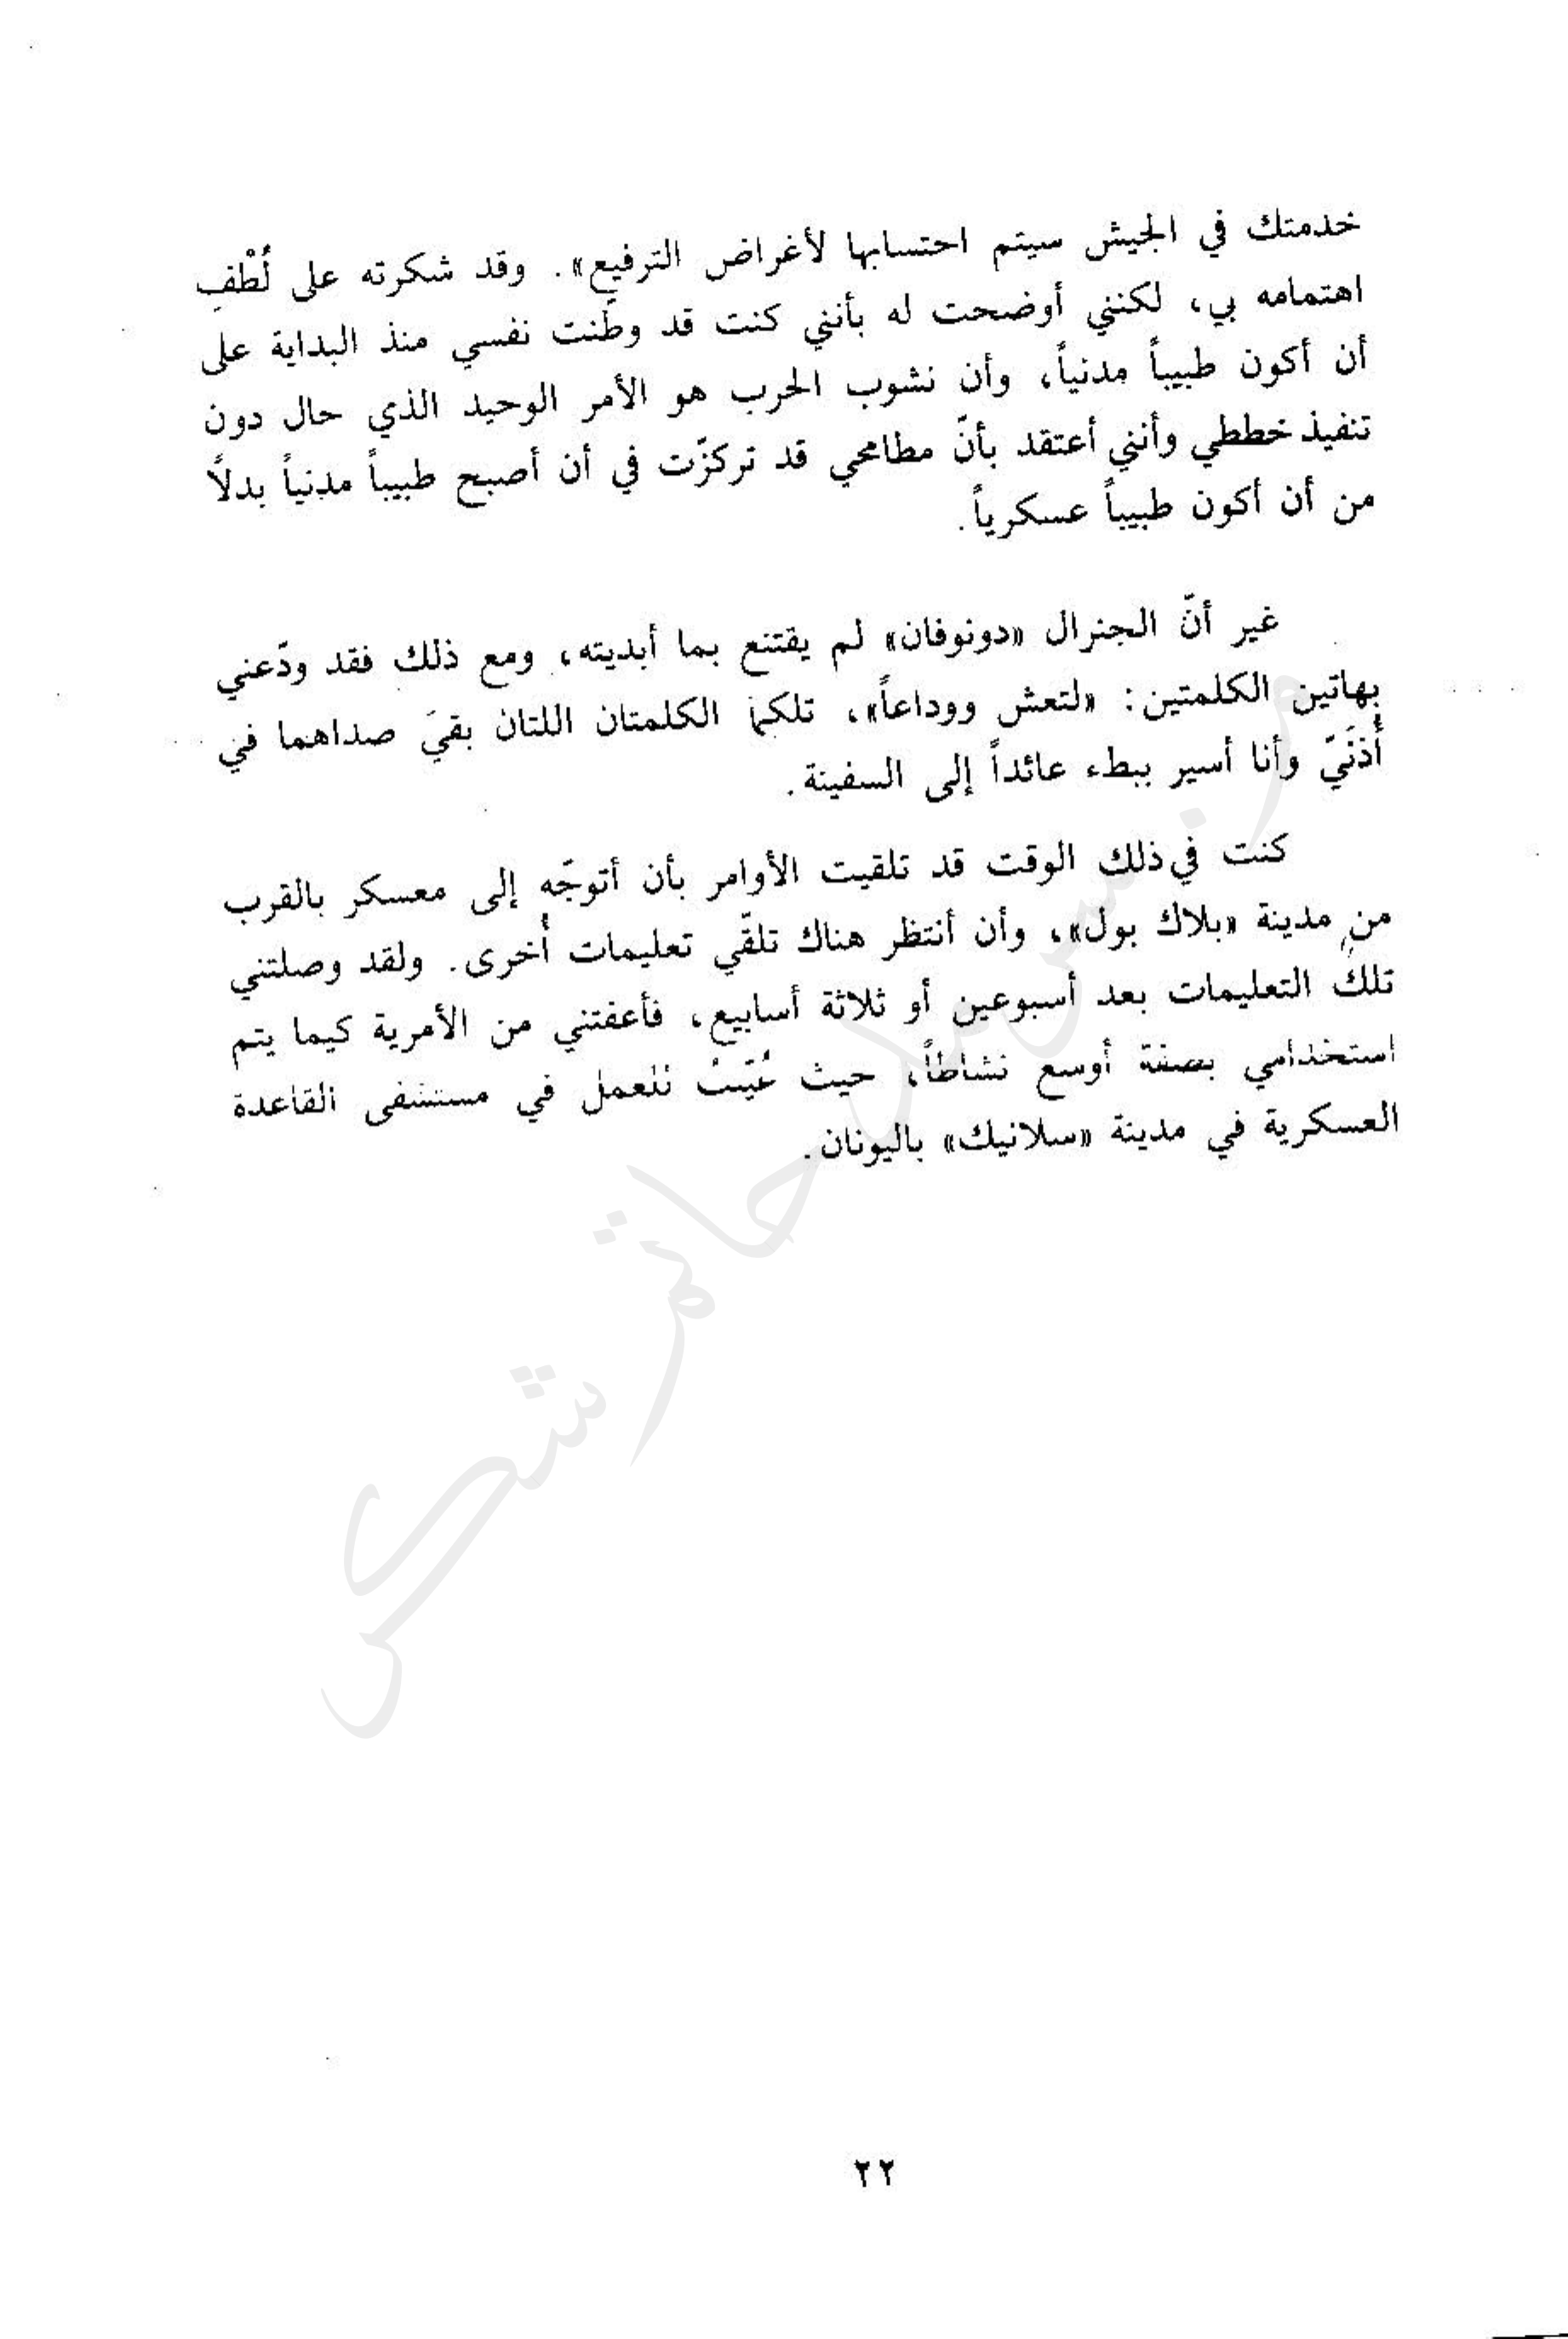 خدمتك في الجيش سيتم احتسابها لأغراض الترفيع». وقد شكرته على لُطْفِ
اهتمامه بي، لكنني أوضحت له بأنني كنت قد وطّنت نفسي منذ البداية على
أن أكون طبيباً مدنياً، وأن نشوب الحرب هو الأمر الوحيد الذي حال دون
تنفيذ خططي وأنني أعتقد بأنّ مطامحي قد تركزّت في أن أصبح طبيباً مدنياً بدلاً
من أن أكون طبيباً عسكرياً.
غير أنّ الجنرال «دونوفان» لم يقتنع بما أبديته، ومع ذلك فقد ودّعني
بهاتين الكلمتين: «لتعش ووداعاً»، تلكما الكلمتان اللتان بقيَ صداهما في
أُذنَيّ وأنا أسير ببطء عائداً إلى السفينة.
كنت في ذلك الوقت قد تلقيت الأوامر بأن أتوجّه إلى معسكر بالقرب
من مدينة «بلاك بول»، وأن أنتظر هناك تلقّي تعليمات أُخرى. ولقد وصلتني
تلك التعليمات بعد أسبوعين أو ثلاثة أسابيع، فأعفتني من الأمرية كيما يتم
استخدامي بصفة أوسع نشاطاً، حيث عُيّنتُ للعمل في مستشفى القاعدة
العسكرية في مدينة «سلانيك» باليونان.
٢٢